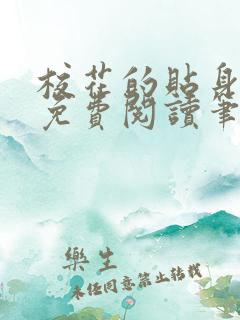 校花的貼身
免費閱讀筆
樂生
未經同意禁止轉載